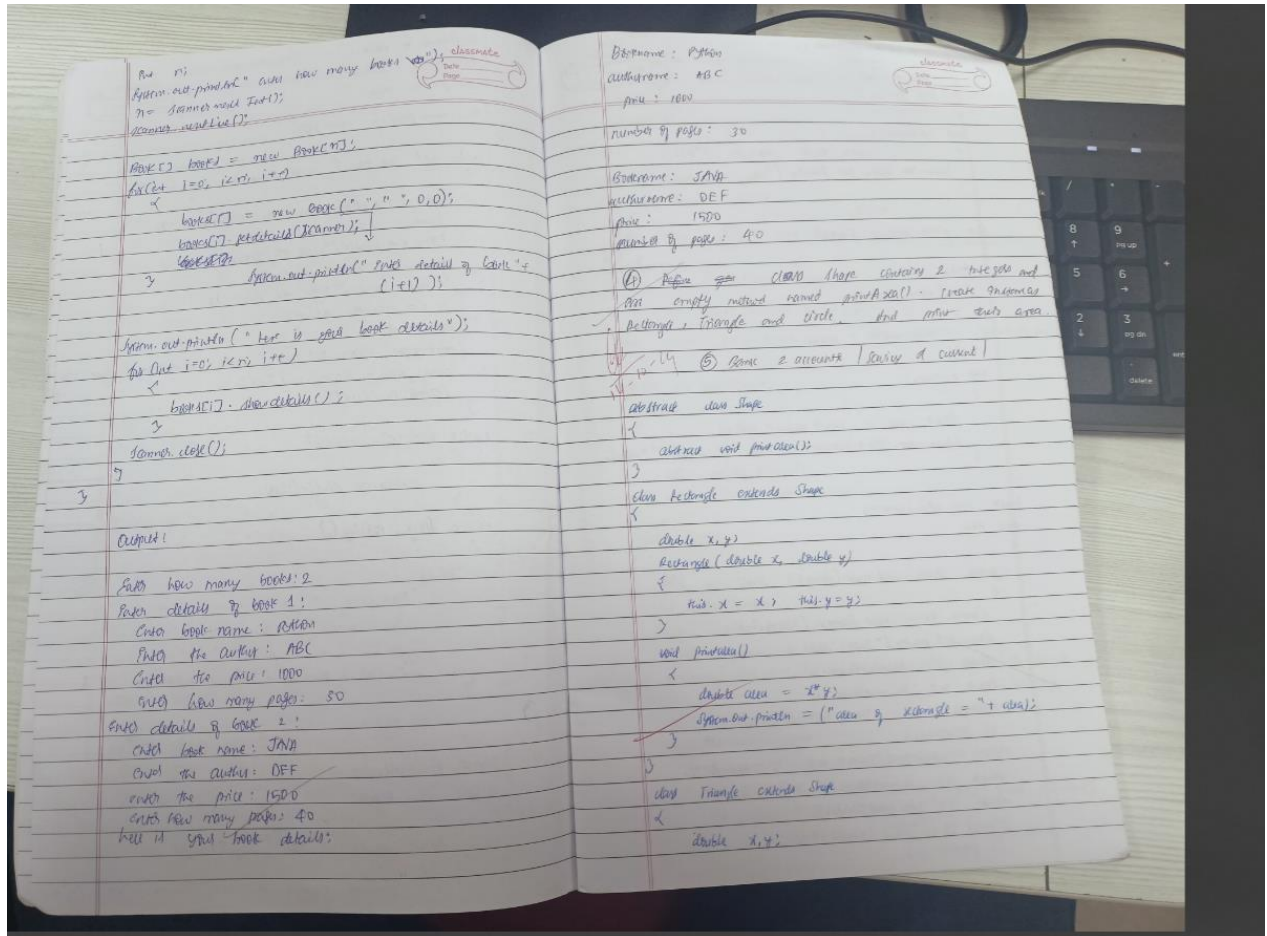 int n;
System.out.println(" enter how many books ");
n = scanner.next Int();
scanner.nextLine();
Book[] books = new Book[n];
for(int i=0; i<n; i++)
{
books[i] = new Book(" ", " ", 0,0);
books[i].setdetails(scanner);
System.out.println(" Enter detail of book "+
(i+1) );
}
System.out.println(" here is your book details");
for (int i=0; i<n; i++)
{
books[i].showdetails();
}
scanner.close();
}
}
Output:
Enter how many books: 2
Enter details of book 1:
Enter book name: Python
Enter the author: ABC
Enter the price: 1000
enter how many pages: 30
Enter details of book 2:
enter book name: JAVA
Enter the author: DEF
enter the price: 1500
enter how many pages: 40
here is your book details:
classmate
Date
Page
Bookname: Python
authorname: ABC
price: 1000
number of pages: 30
Bookname: JAVA
authorname: DEF
price: 1500
number of pages: 40
④ class shape contains 2 integers and
an empty method named printArea(). Create
Rectangle, Triangle and circle. And print area
⑤ Bank 2 accounts | saving & current |
abstract class Shape
{
abstract void printarea();
}
class Rectangle extends Shape
{
double x,y;
Rectangle (double x, double y)
{
this.x = x; this.y=y;
}
void printarea()
{
double area = x*y;
System.out.println = ("area of rectangle = "+ area);
}
}
class Triangle extends Shape
{
double x,y;
classmate
Date
Page
8
9
pg up
5
6
2
3
pg dn
delete